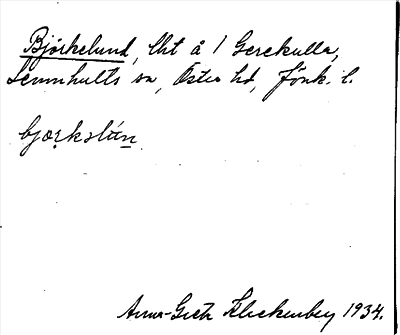 Björkelund, lht å 1 Gerekulla,
Lemnhults sn, Östra hd, Jönk. l.
bjœrkslún
Anna-Greta Fleckenberg 1934.